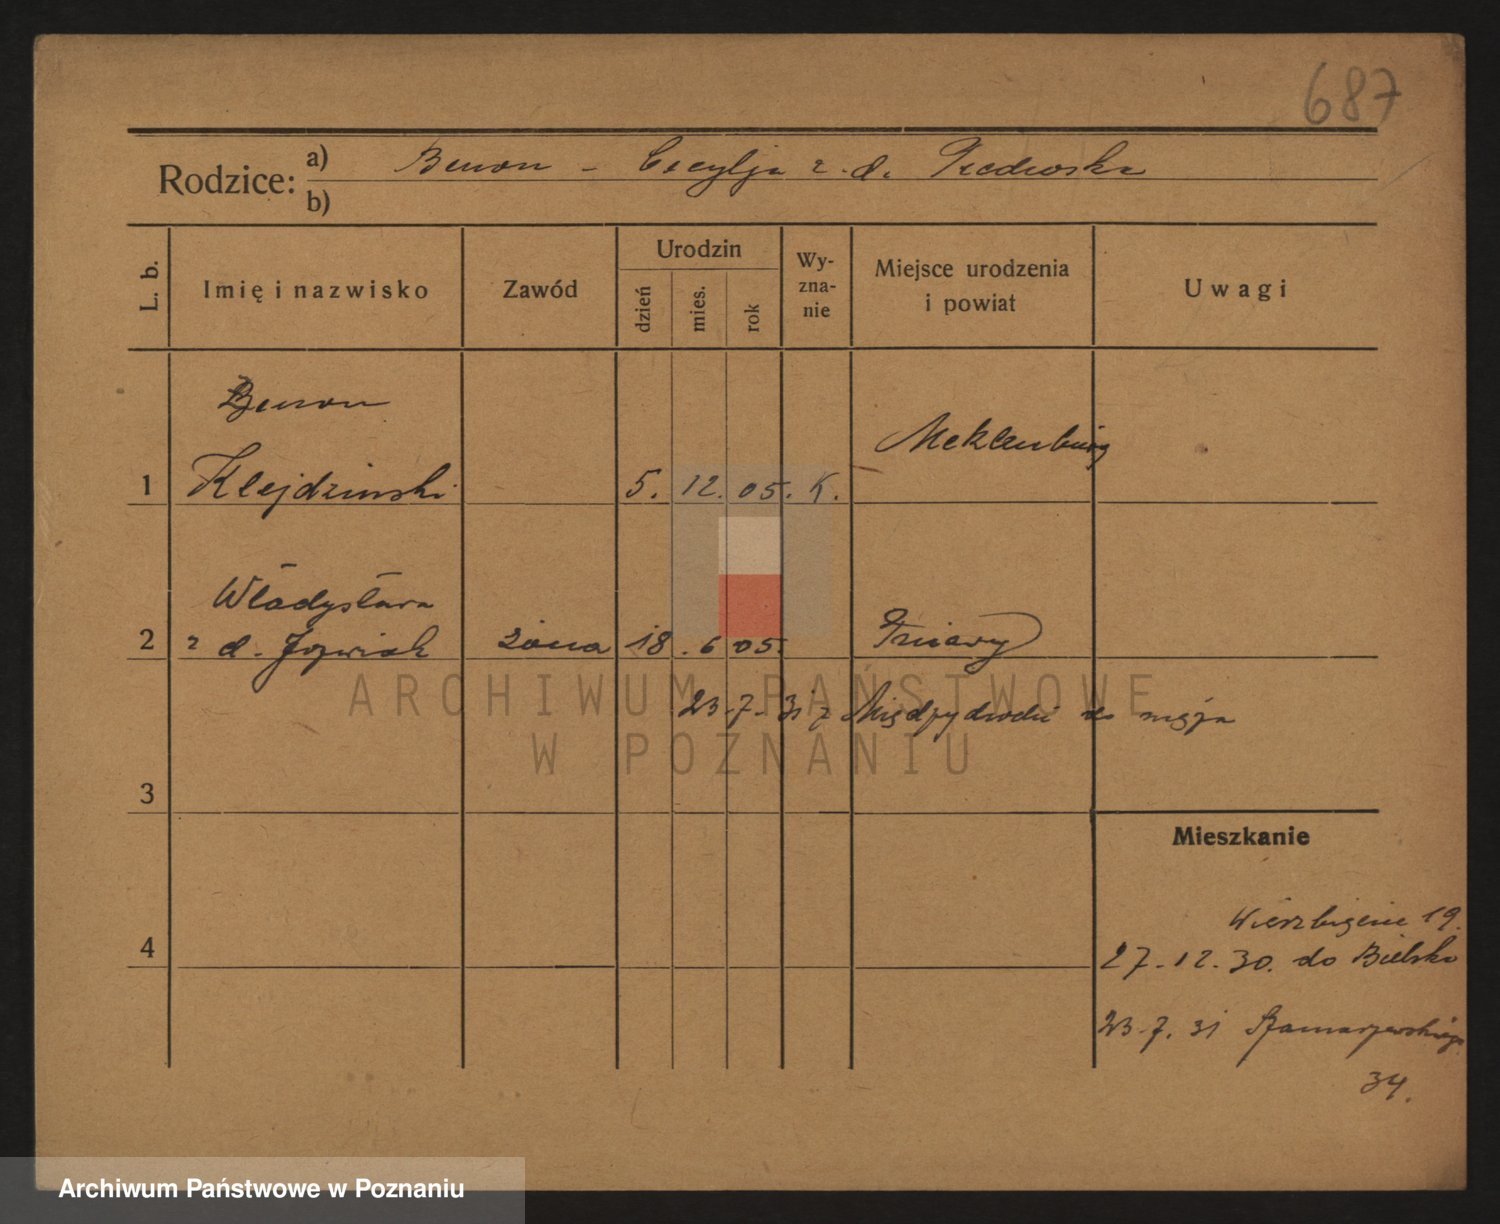 687
Rodzice:
a) Benon - Cecylja z. d.
b)
L. b.
Imię i nazwisko
Zawód
Urodzin
dzień
mies.
rok
Wy-
zna-
nie
Miejsce urodzenia
i powiat
Uwagi
Benon
Meklenburg
1 Klejdzinski 5. 12. 05. K.
Władysława
2 z d. Jozwiak żona 18. 6 05.
23-7-31 z do męża
3
Mieszkanie
4
Wierzbięcice 19.
27-12.30. do Bielska
23-7.31 Szamarzewskiego
34.
ARCHIWUM PAŃSTWOWE
W POZNANIU
Archiwum Państwowe w Poznaniu